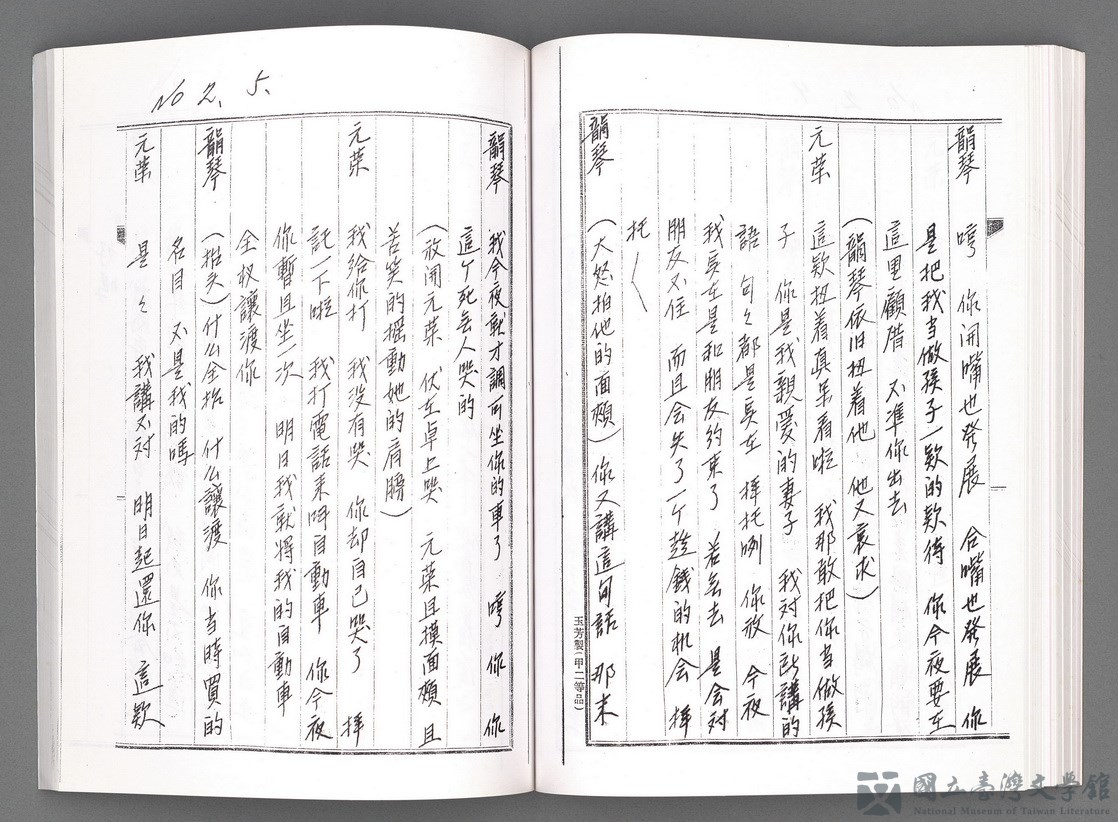 韻琴 哼 你開嘴也發展 合嘴也發展 你
是把我当做孩子一欵的欵待 你今夜要在
這里顧厝 不準你出去
(韻琴依旧扭着他 他又哀求)
元葉 這欵扭着真呆看啦 我那敢把你当做孩
子 你是我親愛的妻子 我对你所講的
語 句々都是实在 拜托咧 你放 今夜
我实在是和朋友約束了 若無去 是会对
朋友不住 而且会失了一个趁錢的机会 拜
托
韻琴 (大怒拍他的面頰) 你又講這句話 那末
玉芳製(甲二等品)
No 2. 5.
韻琴 我今夜就才調所坐你的車了 哼 你 你
這个死無人哭的
(放開元葉 伏在卓上哭 元葉且摸面頰 且
苦笑的搖動她的肩膀)
元葉 我給你打 我没有哭 你却自己哭了 拜
託一下啦 我打電話来呼自動車 你今夜
你暫且坐一次 明日我就將我的自動車
全权讓渡你
韻琴 (抬头) 什么全权 什么讓渡 你当時買的
名目 不是我的嗎
元葉 是々 我講不对 明日起還你 這欵
國立臺灣文學館
National Museum of Taiwan Literature